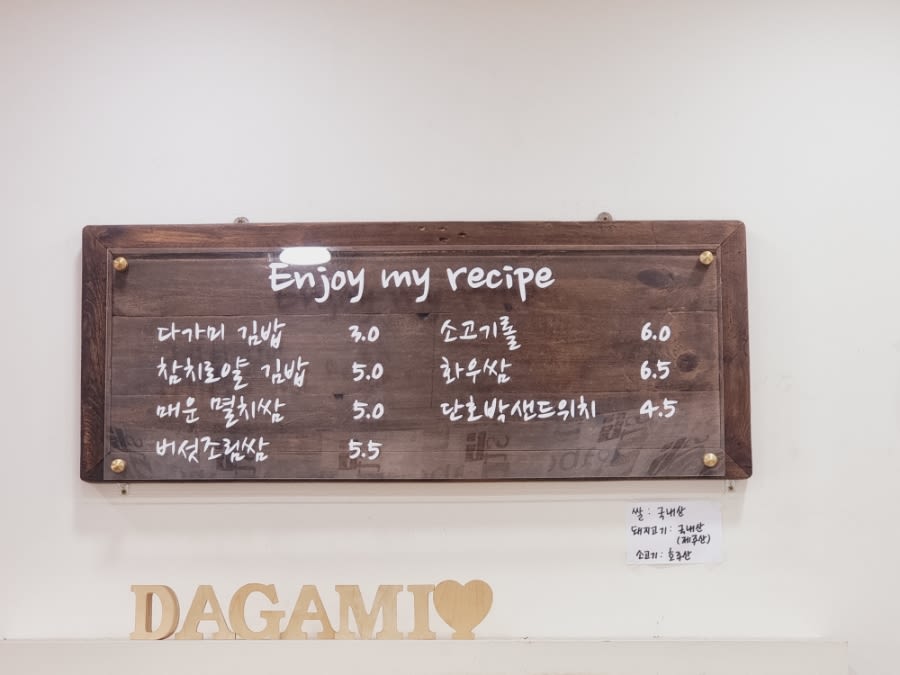 Enjoy my recipe
다가미 김밥 3.0
참치로얄 김밥 5.0
매운 멸치쌈 5.0
버섯조림쌈 5.5
소고기롤 6.0
화우쌈 6.5
단호박샌드위치 4.5
쌀 : 국내산
돼지고기 : 국내산
(제주산)
소고기 : 호주산
DAGAMI